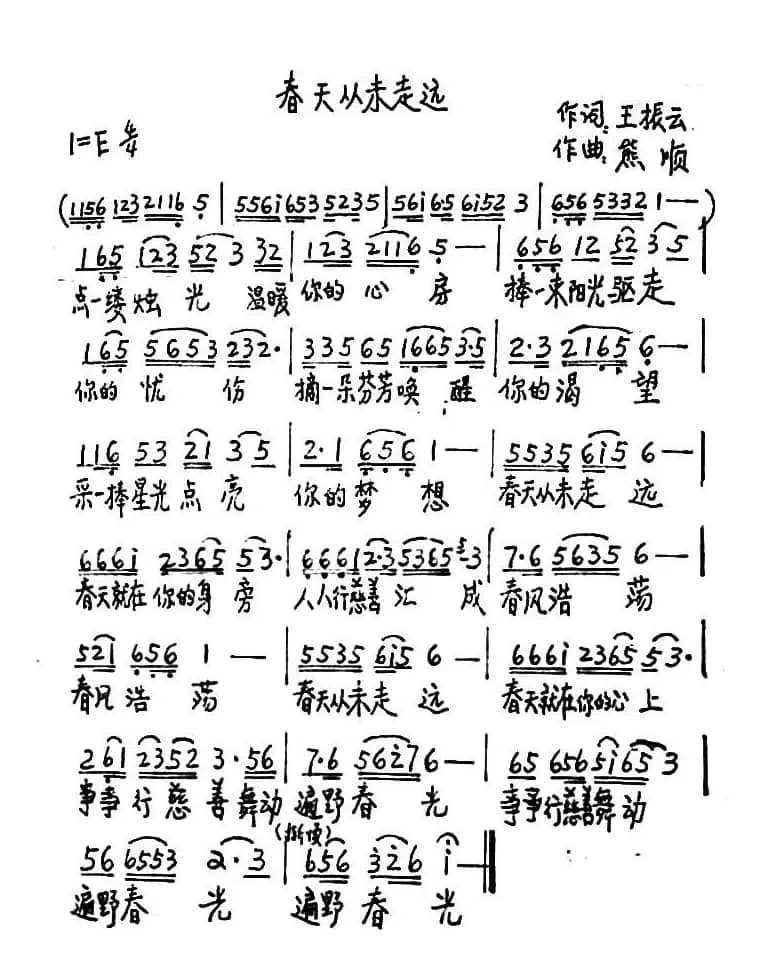 春天从未走远
1=E 4/4
作词:王振云
作曲:熊顺
(1156 1232116 5|556i653 5235|56i6·5 6i52 3|656 5332 1——)
165 123 52 3 32|123 2116 5—|656 12 52 35|
点一缕烛光 温暖你的心房 捧一束阳光驱走
165 5653 232·|335 65 16653·5|2·3 2165 6—|
你的忧伤 摘一朵芬芳唤醒你的渴望
116 53 21 35|2·1 656 1—|5535 6i5 6—|
采一捧星光点亮 你的梦想 春天从未走远
666i 2365 53·|6661 2·3 5365 5 3|7·6 5635 6—|
春天就在你的身旁 人人行慈善汇成春风浩荡
521 656 1—|5535 6i5 6—|666i 2365 53·|
春风浩荡 春天从未走远 春天就在你的心上
261 2352 3·56|7·6 56276—|65 656 5i65 3|
事事行慈善舞动遍野春光 事事行慈善舞动
(渐慢)
56 6553 2·3|656 326 i—||
遍野春光 遍野春光